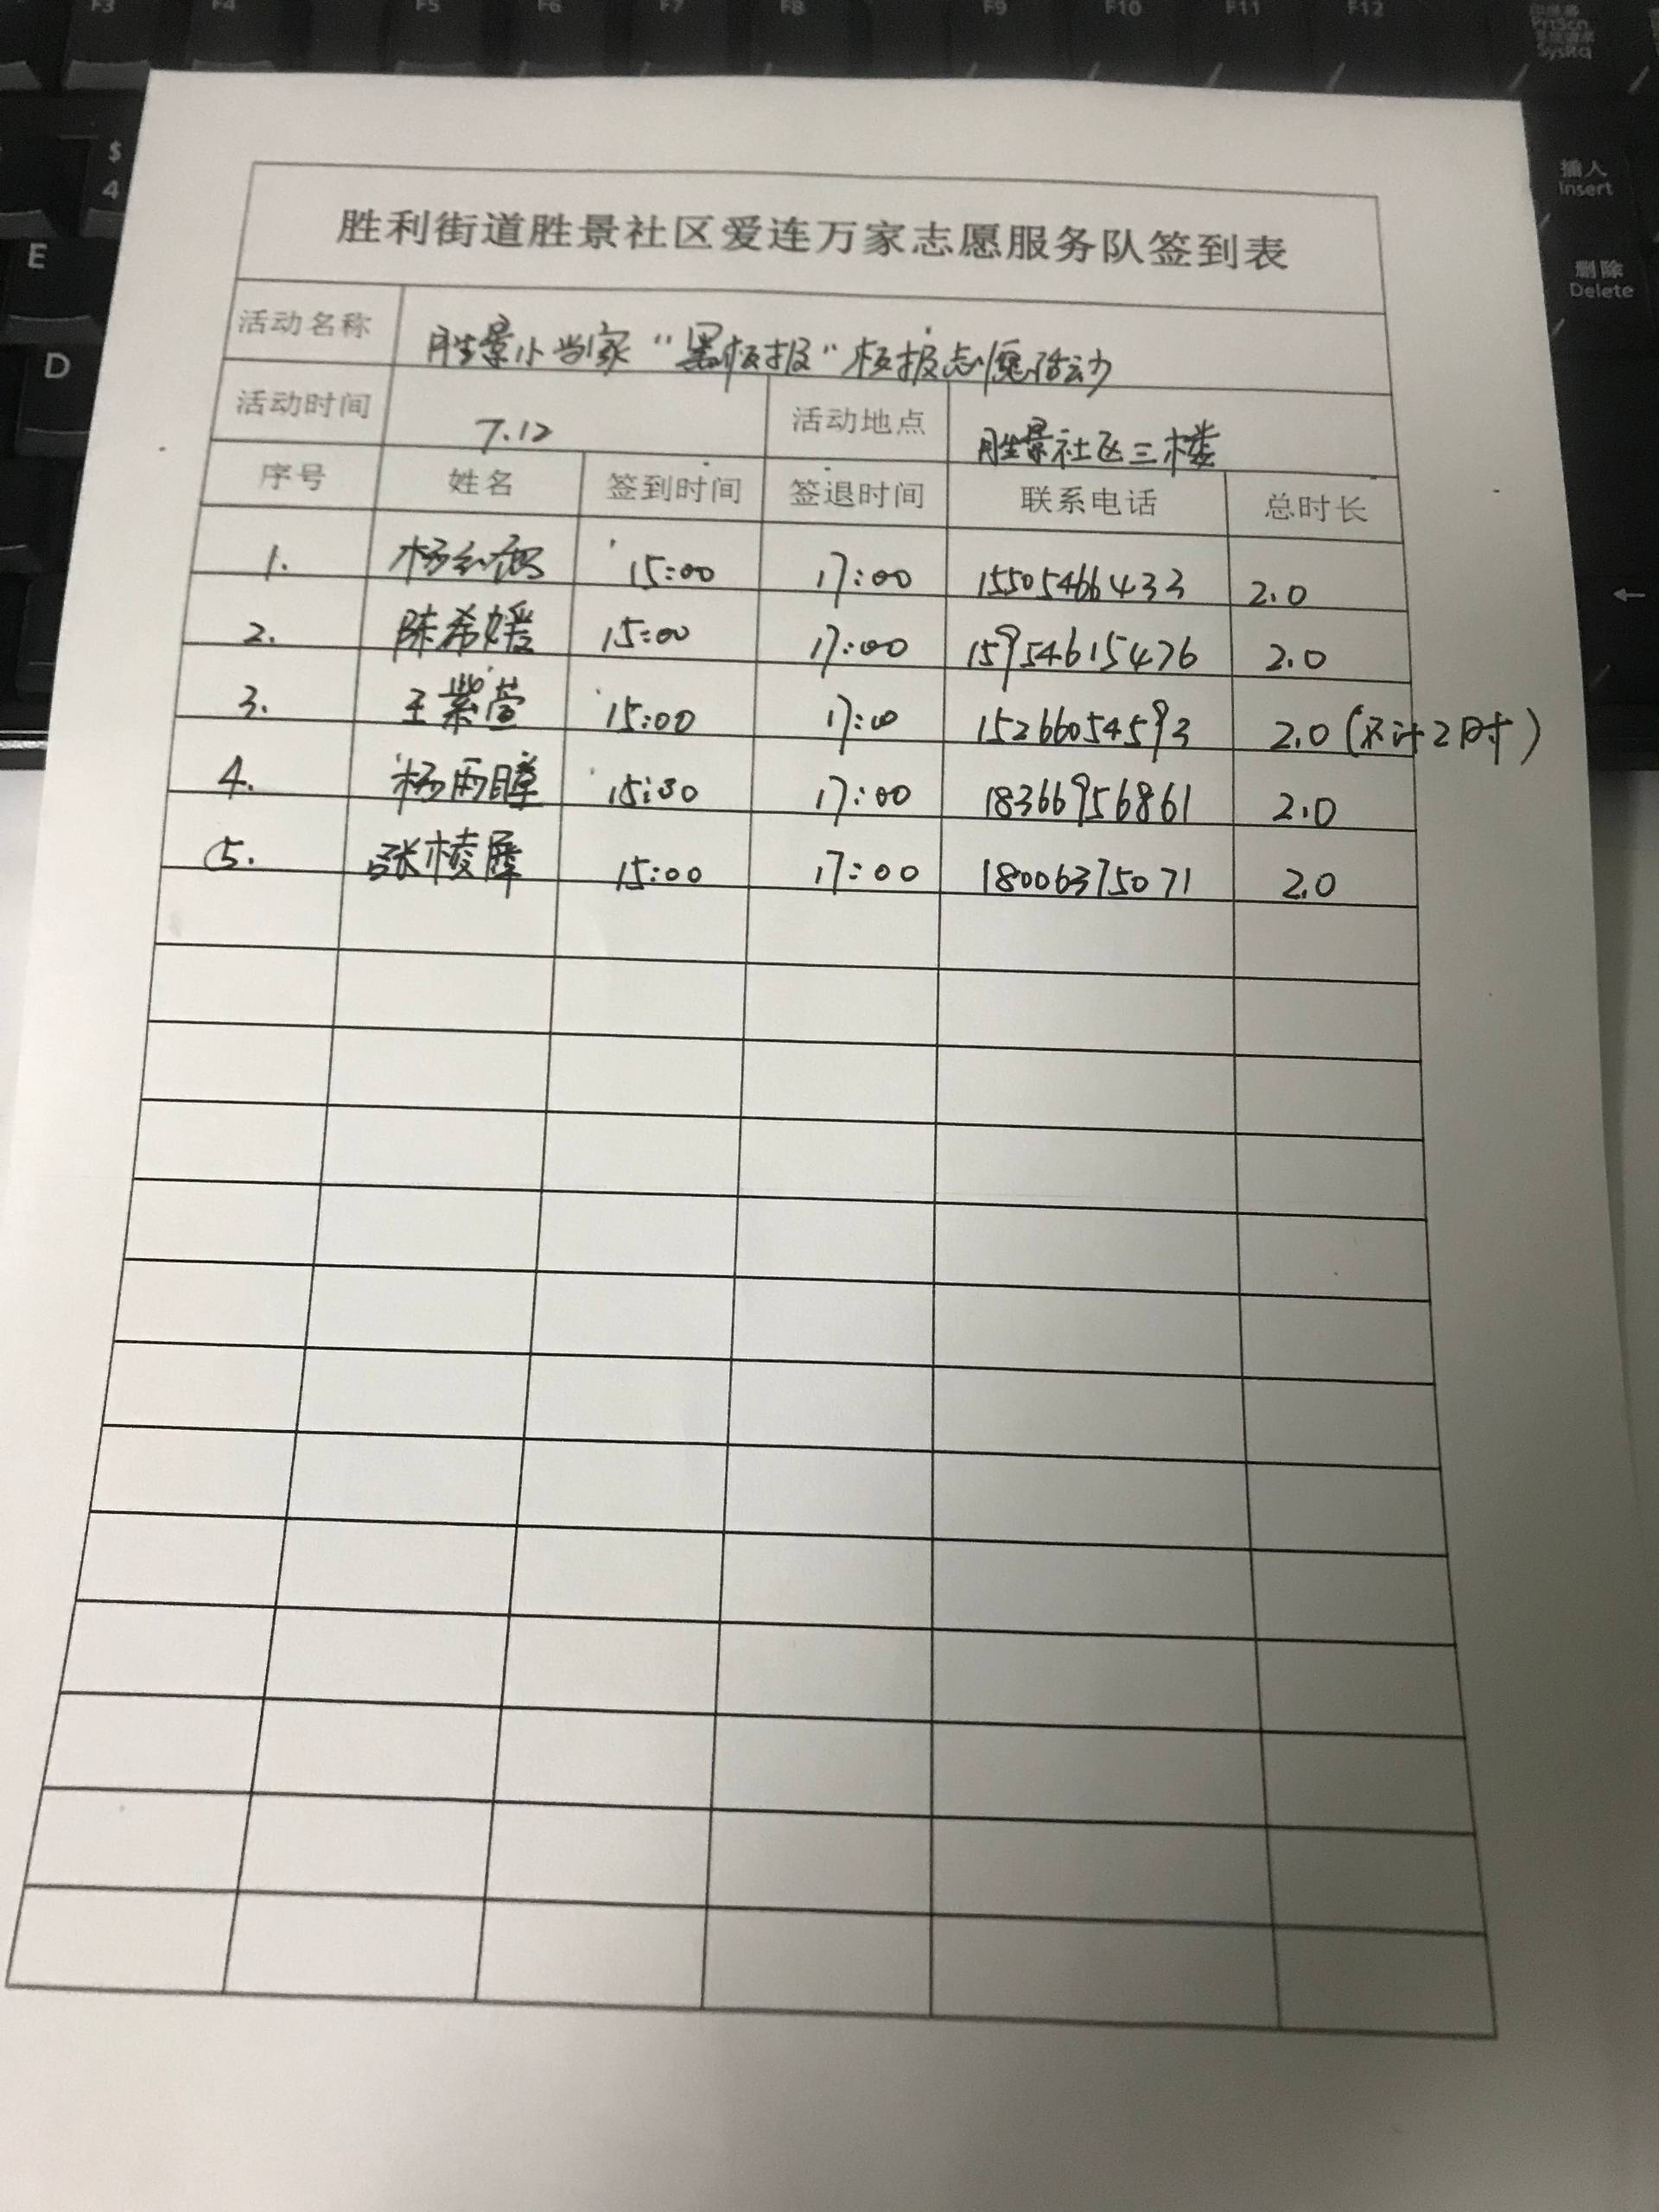 F3 F4 F5 F6 F7 F8 F9 F10 F11 F12
PrtScn
SysRq
$
4
E
D
插入
Insert
删除
Delete
←
胜利街道胜景社区爱连万家志愿服务队签到表
活动名称 胜景小当家“黑板报”板报志愿活动
活动时间 7.12 活动地点 胜景社区三楼
序号 姓名 签到时间 签退时间 联系电话 总时长
1. 杨 15:00 17:00 15505466433 2.0
2. 陈希媛 15:00 17:00 15954615476 2.0
3. 王紫萱 15:00 17:00 15266054593 2.0 (不计2时)
4. 杨雨瞳 15:30 17:00 18366956861 2.0
5. 张棱 15:00 17:00 18006375071 2.0